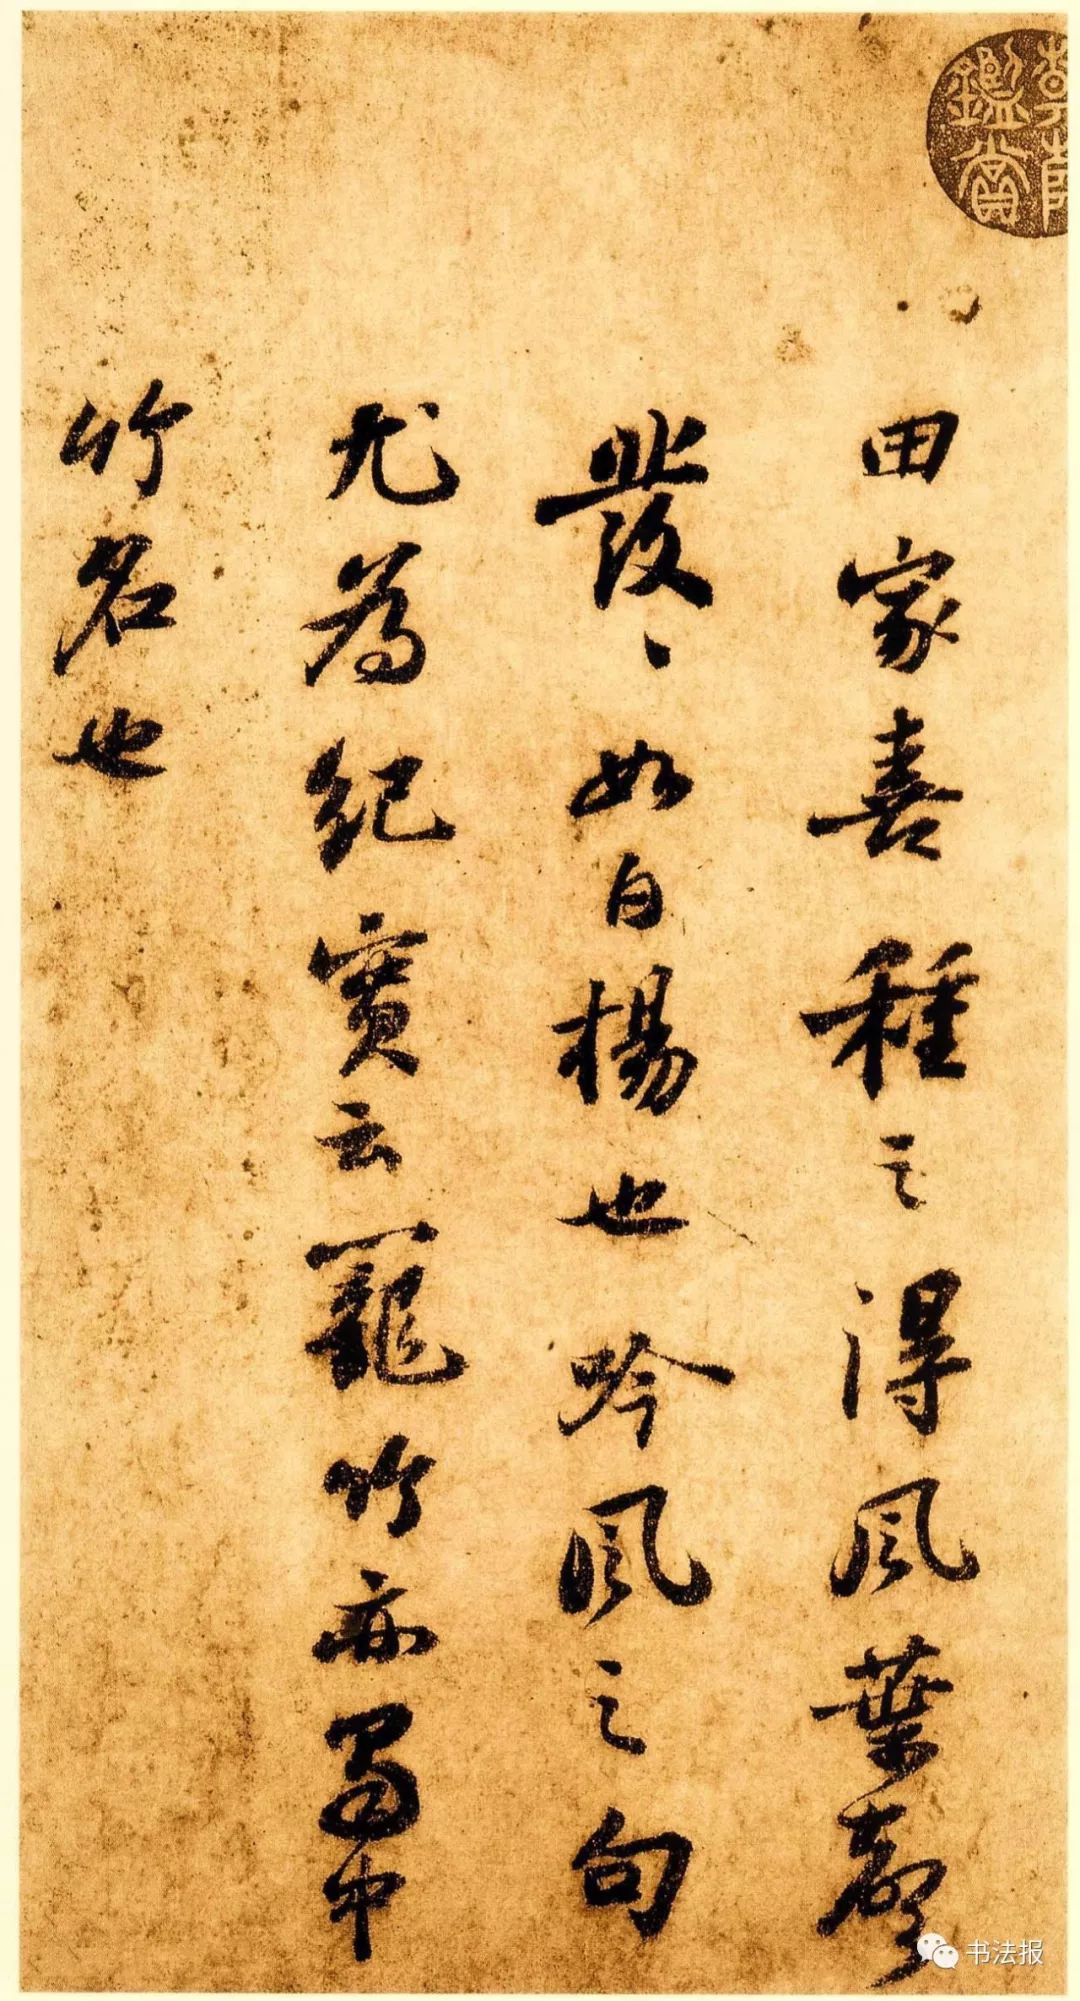 田家喜種之得風葉聲
發〻如白楊也吟風之句
尤為紀實云籠竹亦蜀中
竹名也
鑑賞
书法报